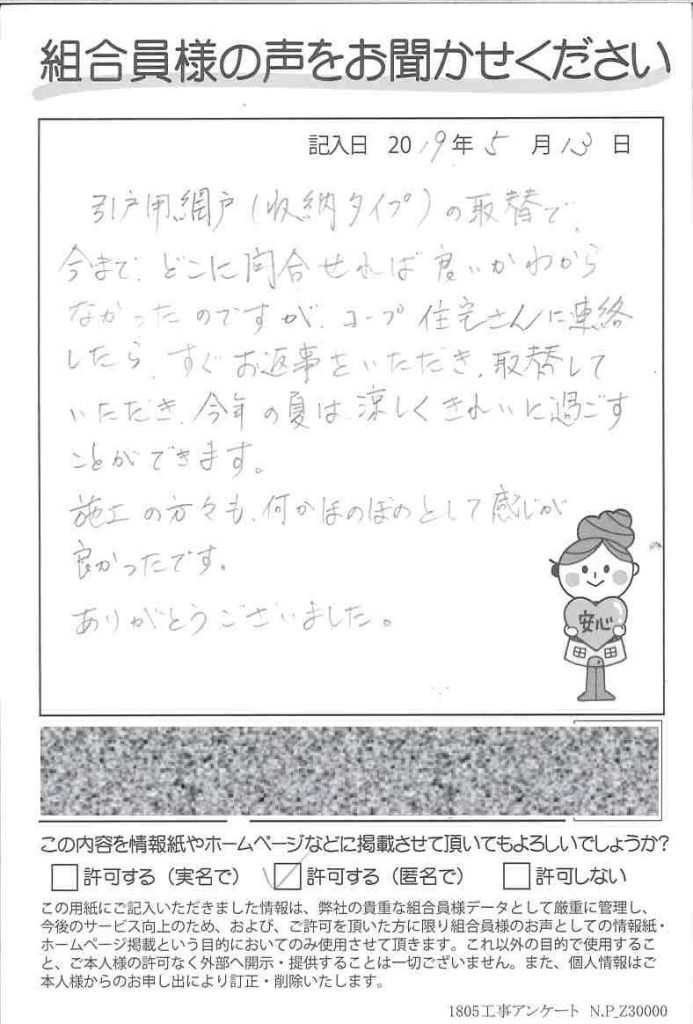 組合員様の声をお聞かせください
記入日 2019年5月13日
引戸用網戸(収納タイプ)の取替で、
今まで、どこに問合せれば良いかわから
なかったのですが、コープ住宅さんに連絡
したら、すぐお返事をいただき、取替して
いただき、今年の夏は、涼しくきれいに過ごす
ことができます。
施工の方々も、何かほのぼのとして感じが
良かったです。
ありがとうございました。
安心
この内容を情報紙やホームページなどに掲載させて頂いてもよろしいでしょうか?
許可する(実名で) 許可する(匿名で) 許可しない
この用紙にご記入いただきました情報は、弊社の貴重な組合員様データとして厳重に管理し、
今後のサービス向上のため、および、ご許可を頂いた方に限り組合員様のお声としての情報紙・
ホームページ掲載という目的においてのみ使用させて頂きます。これ以外の目的で使用するこ
と、ご本人様の許可なく外部へ開示・提供することは一切ございません。また、個人情報はご
本人様からのお申し出により訂正・削除いたします。
1805工事アンケート N.P_Z30000